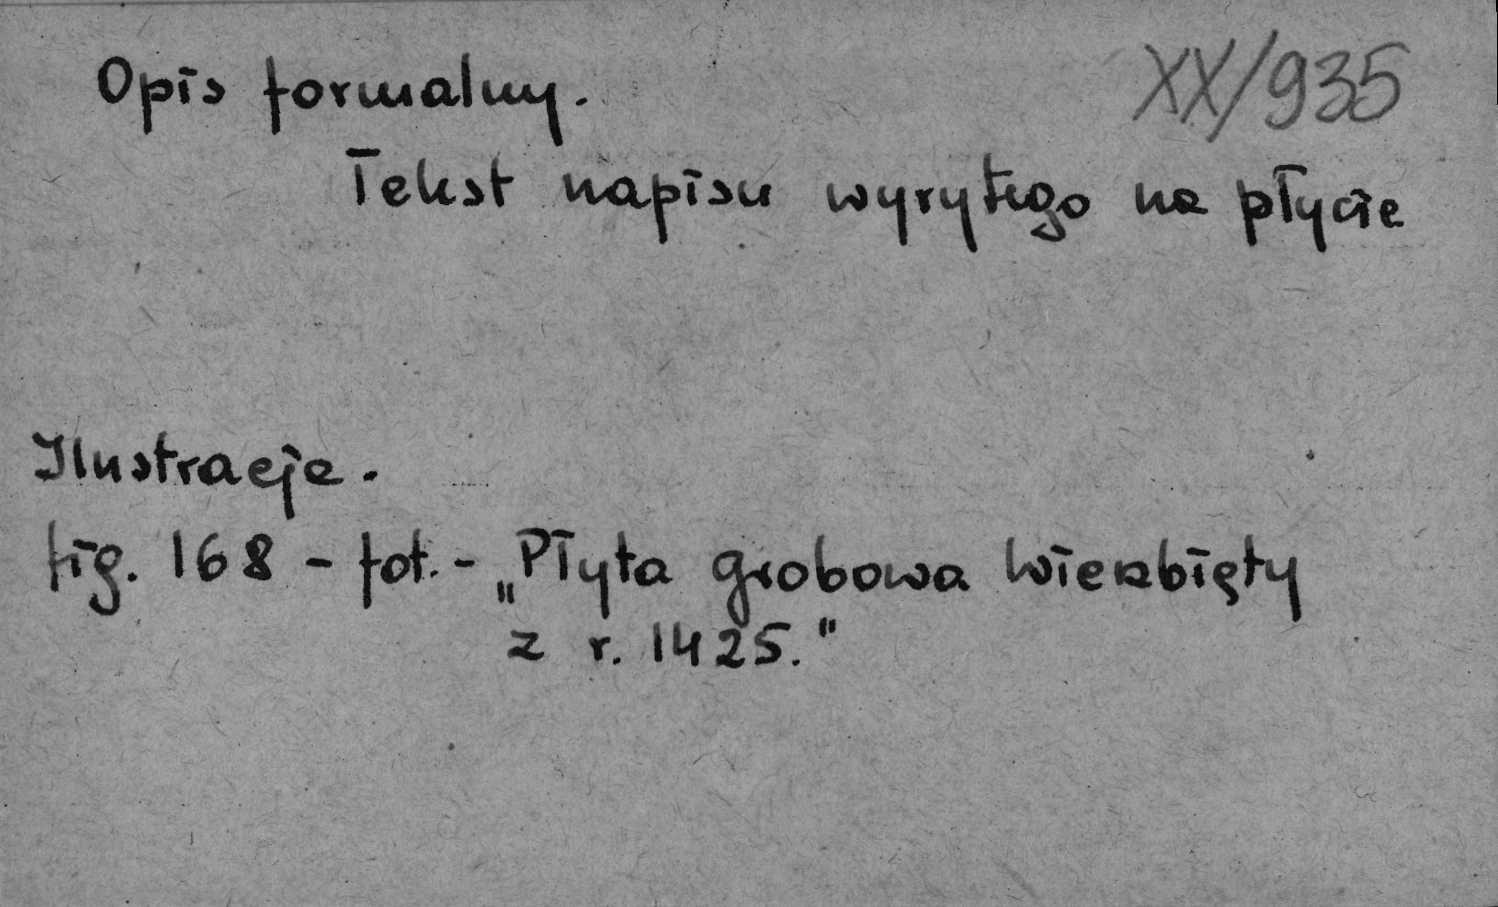 Opis formalny. XX/935
Tekst napisu wyrytego na płycie
Ilustracje.
fig. 168 - fot. - „Płyta grobowa Wierzbięty
z r. 1425."